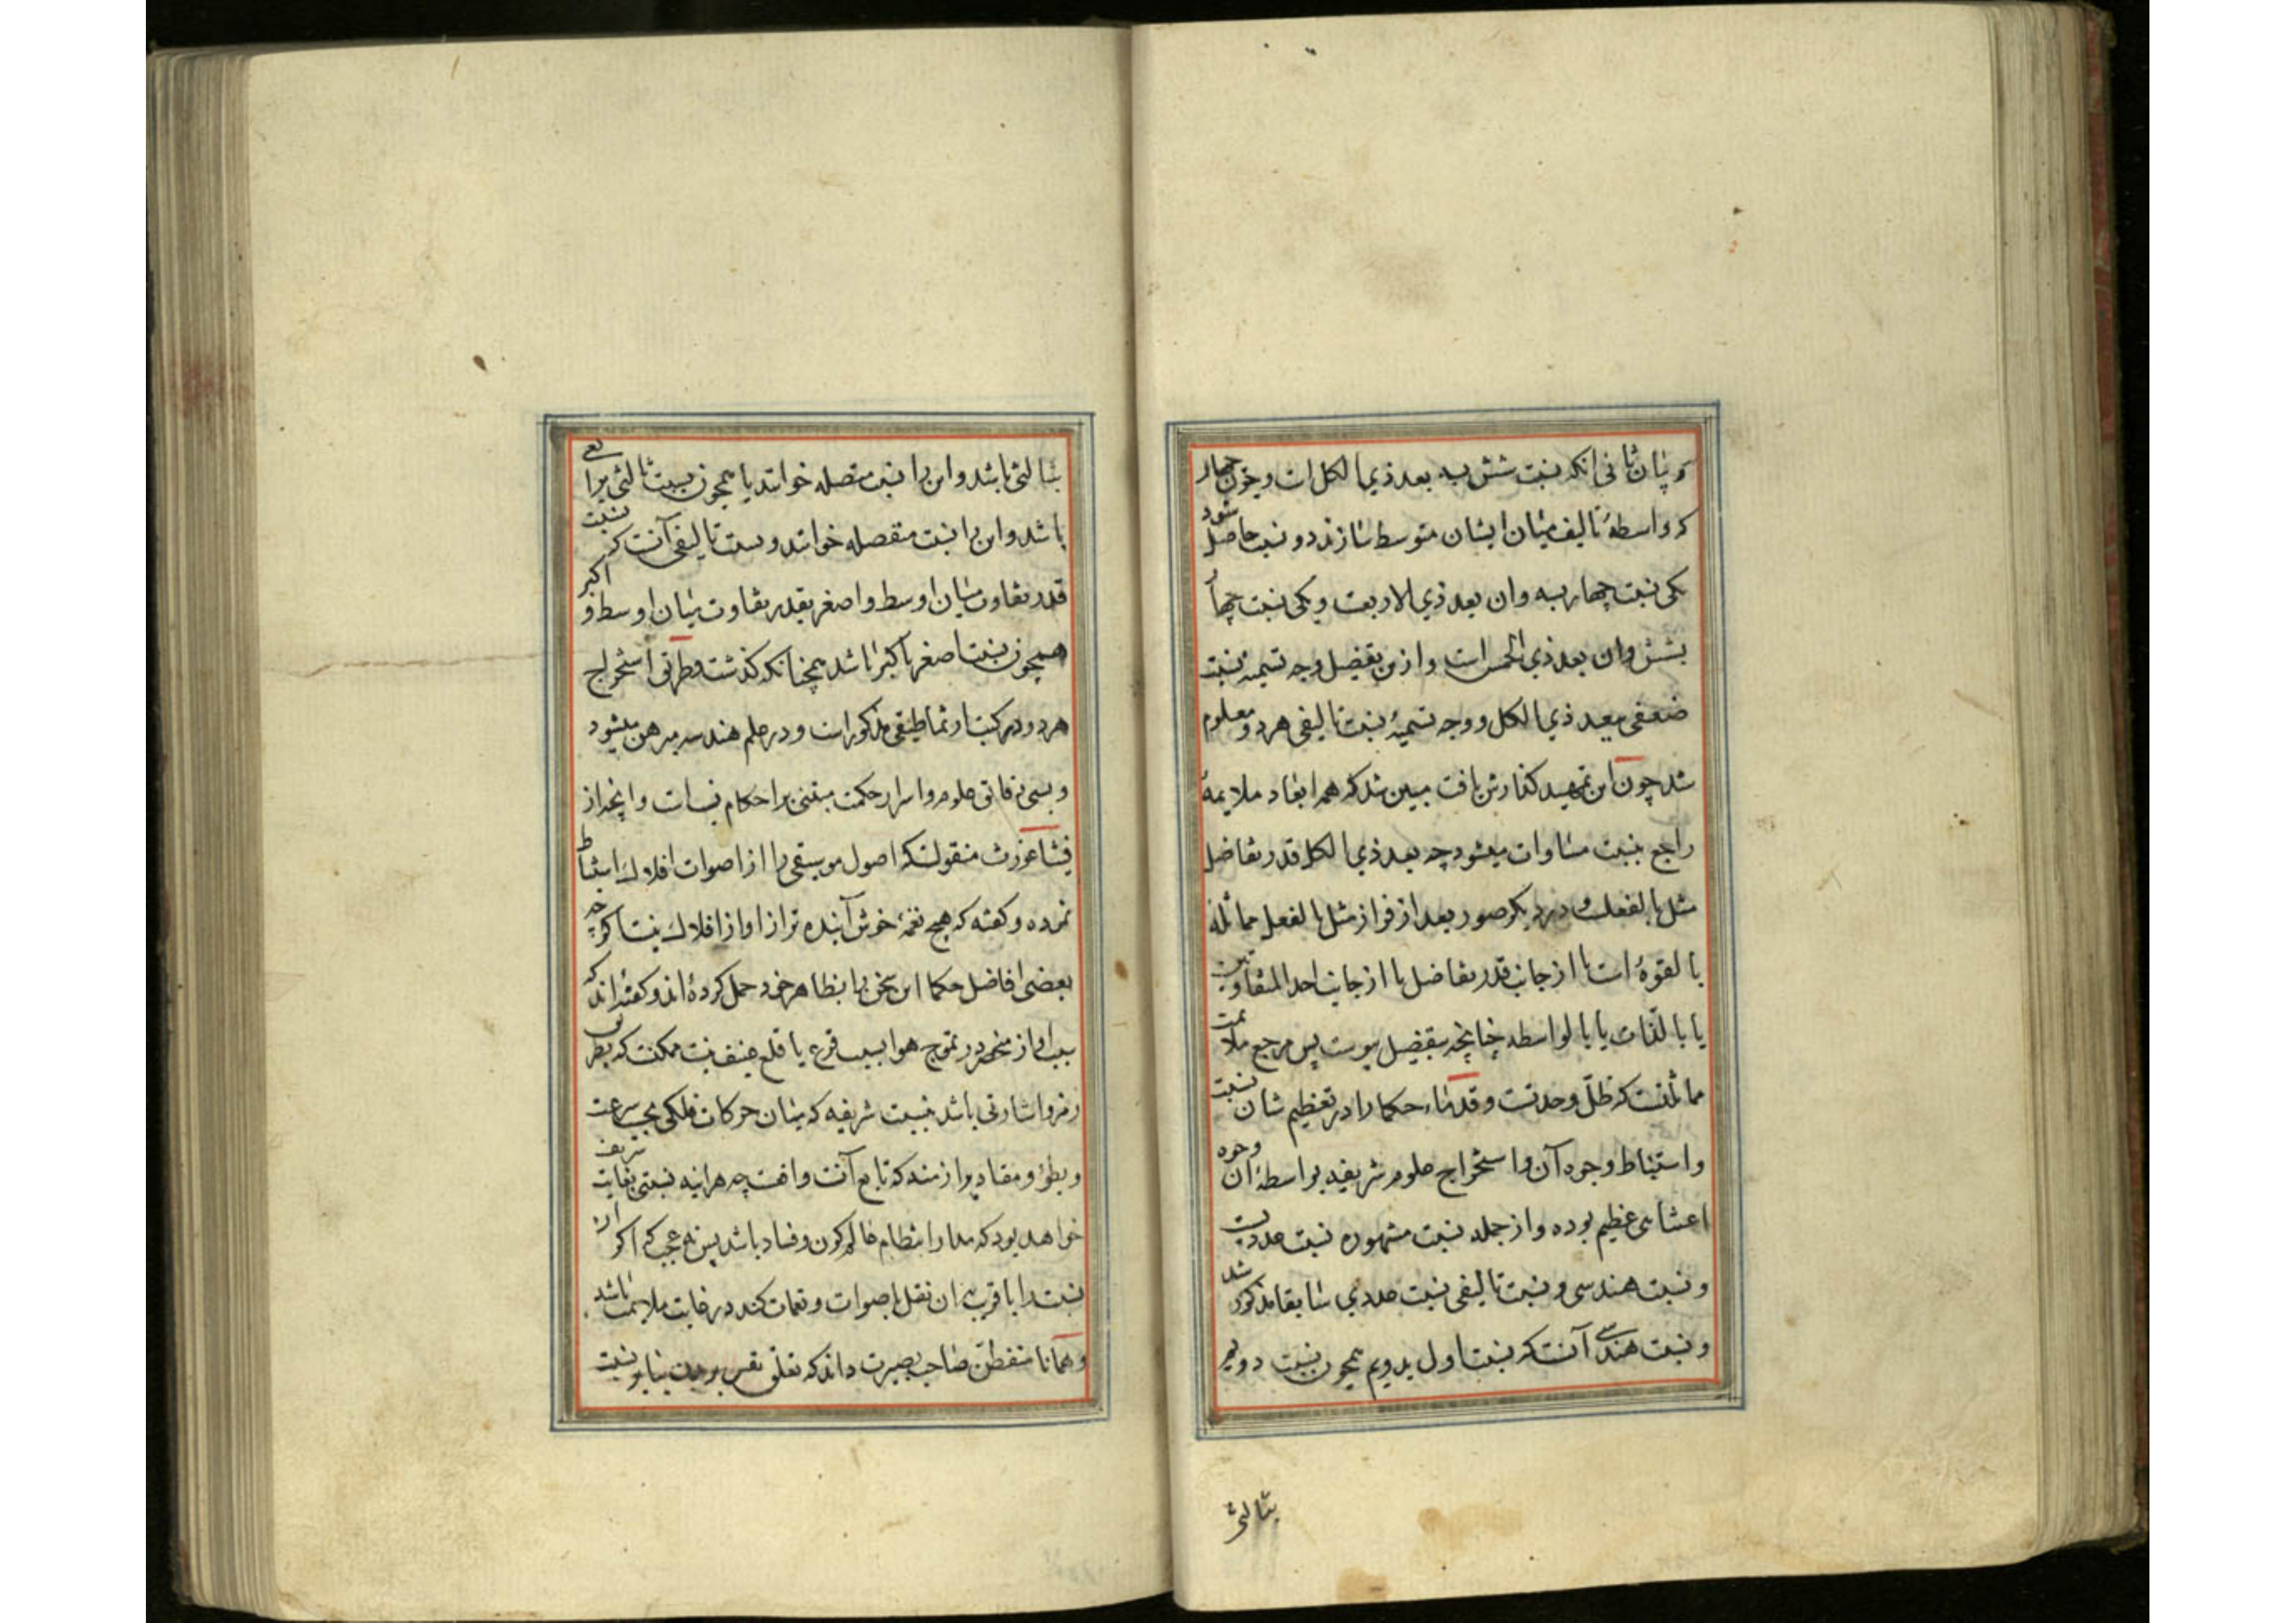 و بیان ثانی انکه نسبت شش بسه بعد ذی الکل است و چون چهار
که واسطهٔ تالیف میان ایشان متوسط سازند دو نسبت حاصل شود
یکی نسبت چهار بسه وان بعد ذی الاربعست و یکی نسبت چهار
بشش وان بعد ذی الخمس است و ازین تفصیل وجه تسمیهٔ نسبت
ضعفی ببعد ذی الکل و وجه تسمیهٔ نسبت تالیفی هر دو معلوم
شد چون این تمهید گذارش یافت مبین شد که همه ابعاد ملایمه
راجع بنسبت مساوات میشود چه بعد ذی الکل قدر تفاضل
مثل بالفعلست و در دیگر صور بعد از فراز مثل بالفعل مماثله
بالقوه است یا از جانب قدر تفاضل یا از جانب احد المتفاوتین
یا بالذات یا بالواسطه چنانچه بتفصیل پیوست پس مرجع ملایمت
مماثلتست که ظل وحدتست و قدماء حکما را در تعظیم شان نسبت
واستنباط وجوه آن واستخراج علوم شریفه بواسطهٔ ان وجوه
اعتنای عظیم بوده و از جمله نسبت مشهوره نسبت عددیست
و نسبت هندسی و نسبت تالیفی نسبت عددی سابقا مذکور شد
و نسبت هندسی آنست که نسبت اول بدویم همچون نسبت دویم
بثالثی
بثالثی باشد و این را نسبت متصله خوانند یا همچون نسبت ثالثی برابعی
باشد و این را نسبت منفصله خوانند و نسبت تالیفی آنست که نسبت
قدر تفاوت میان اوسط و اصغر بقدر تفاوت میان اوسط و اکبر
همچون نسبت اصغر باکبر باشد همچنانکه گذشت و طریق استخراج
هر دو در کتب ارثماطیقی مذکور است و در علم هندسه مبرهن میشود
و بسی دقایق علوم و اسرار حکمت مبتنی بر احکام نسب است و انچه از
فیثاغورث منقولست که اصول موسیقی را از اصوات افلاک استنباط
نموده و گفته که هیچ نغمهٔ خوش آینده تر از اواز افلاک نیست اگر چه
بعضی افاضل حکما این سخن را بظاهر خود حمل کرده اند و گفته اند که
سبب اواز منحصر در تموج هوا بسبب قرع یا قلع عنیف نیست ممکنست که بطریق
رمز و اشارتی باشد بنسبت شریفه که میان حرکات فلکی بحسب سرعت
و بطؤ و مقادیر ازمنه که تابع آنست واقعست چه هر اینه نسبتی بغایت شریف
خواهد بود که مدار انتظام عالم کون و فساد باشد پس نه عجب که اگر ان
نسبت را یا قریب بان نقل باصوات و نغمات کنند در غایت ملایمت باشد
و همانا متفطن صاحب بصیرت داند که تعلق نفس ببدن بنا بر نسبت